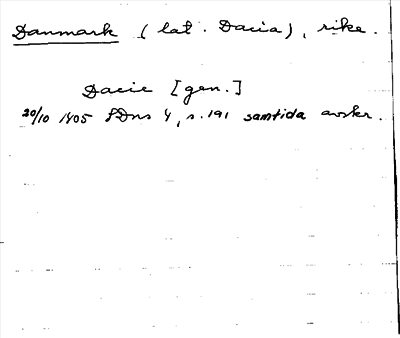 Danmark (lat. Dacia), rike.
Dacie [gen.]
20/10 1405 SDns 4, s. 191 samtida avskr.